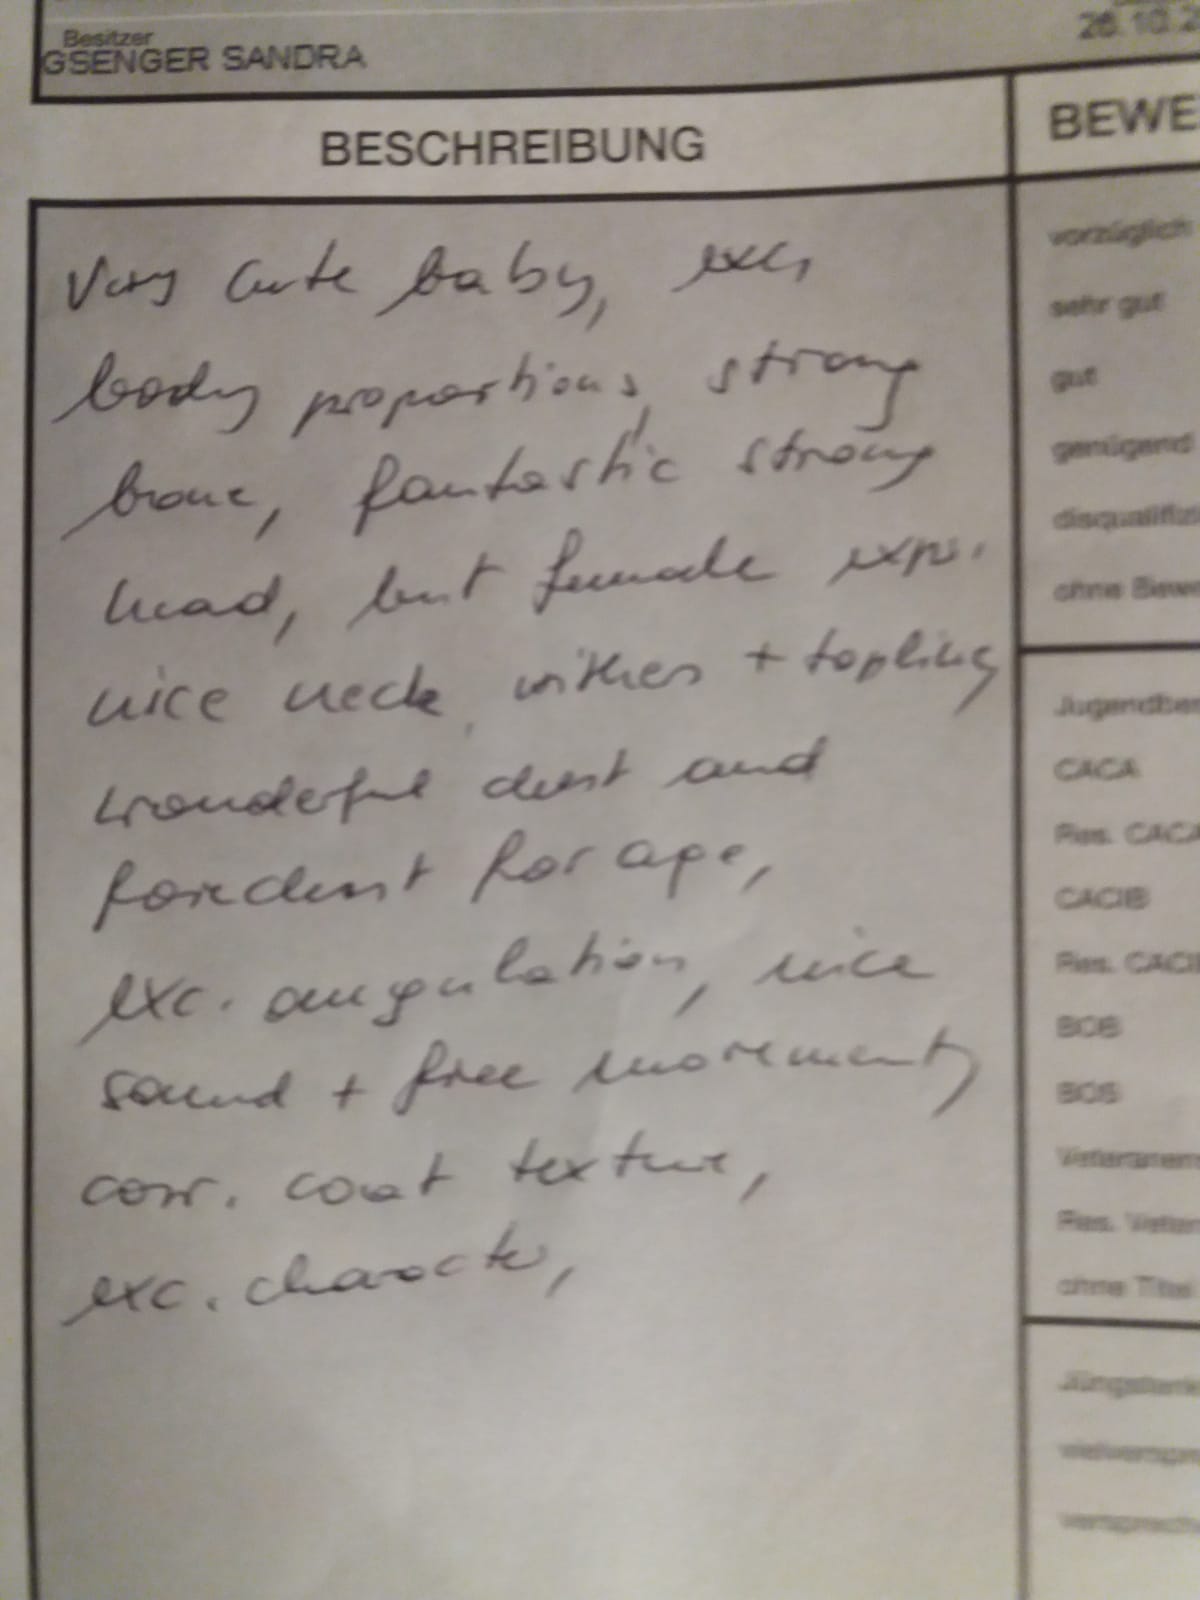 Besitzer
GSENGER SANDRA
26.10.2
BESCHREIBUNG
BEWE
Very cute baby, exc,
body proportions, strong
bone, fantastic strong
head, but female expr.
nice neck, withers + topline,
wonderful chest and
forechest for age,
exc. angulation, nice
sound + free movement,
corr. coat texture,
exc. character,
vorzüglich
sehr gut
gut
genügend
disqualifizi
ohne Bewe
Jugendbes
CACA
Res. CACA
CACIB
Res. CACIB
BOB
BOS
Veteranen
Res. Veter
ohne Titel
Jüngsten
vielverspre
versprech